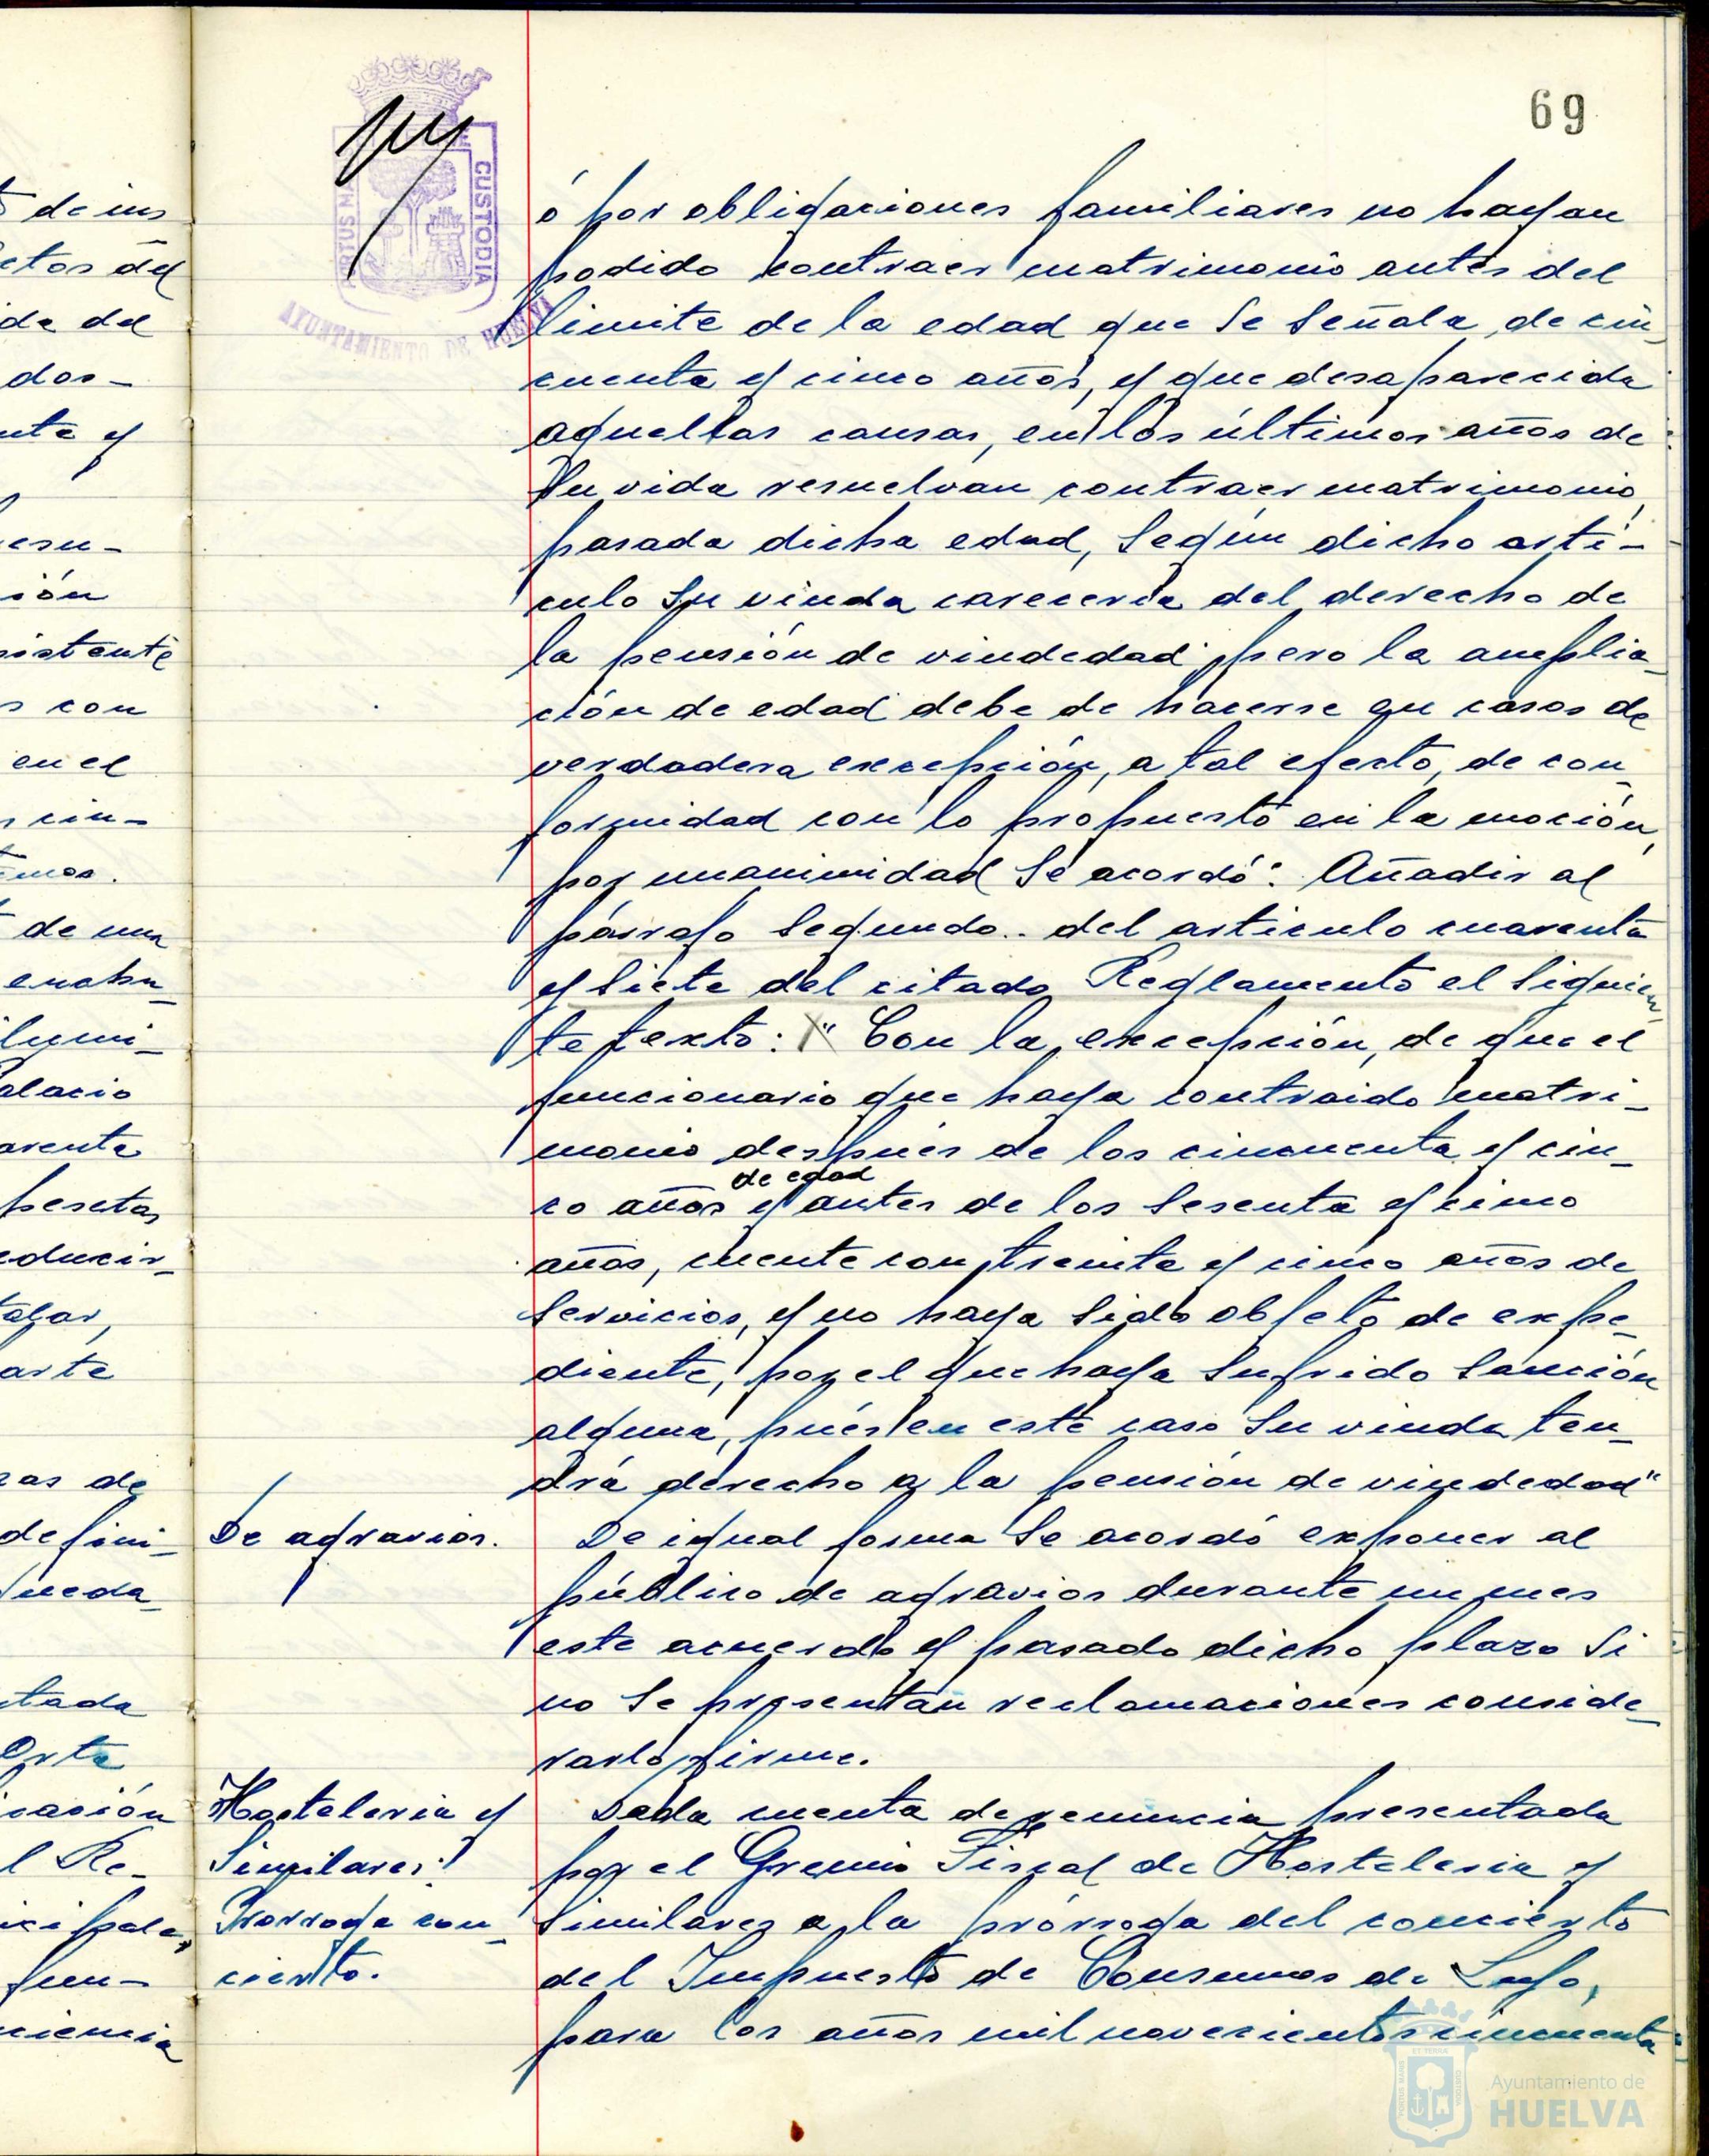 69
ó por obligaciones familiares no hayan
podido contraer matrimonio antes del
limite de la edad que se señala, de cin
cuenta y cinco años, y que desaparecida
aquellas causas, en los últimos años de
su vida resuelvan contraer matrimonio,
pasada dicha edad, según dicho artí-
culo su viuda careceria del derecho de
la pensión de viudedad, pero la amplia_
ción de edad debe de hacerse en casos de
verdadera excepción, a tal efecto, de con_
formidad con lo propuesto en la moción,
por unanimidad se acordó: Añadir al
párrafo segundo.. del articulo cuarenta
y siete del citado Reglamento el siguien_
te texto: " Con la excepción, de que el
funcionario que haya contraido matri_
monio despúes de los cincuenta y cin_
de edad
co años y antes de los sesenta y cinco
años, cuente con treinta y cinco años de
servicios, y no haya sido objeto de expe_
diente, por el que haya sufrido sanción
alguna, púes en este caso su viuda ten_
drá derecho a la pensión de viudedad"
De agravios.
De igual forma se acordó exponer al
público de agravios durante un mes
este acuerdo y pasado dicho plazo si
no se presentan reclamaciones conside_
rarlo firme.
Hosteleria y
Similares:
Prorroga con_
cierto.
Dada cuenta de renuncia presentada
por el Gremio Fiscal de Hosteleria y
Similares a la prórroga del concierto
del Impuesto de Consumos de Lujo,
para los años mil novecientos cincuenta
PORTUS MA
CUSTODIA
AYUNTAMIENTO DE HUELVA
de una
pesetas
Ayuntamiento de
HUELVA